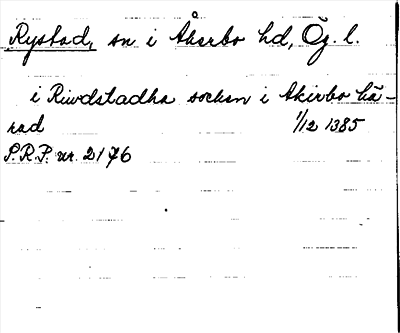 Rystad, sn i Åkerbo hd, Ög. l.
i Riudstadha socken i Akirbo hä-
rad 1/12 1385
S.R.P. nr. 2176